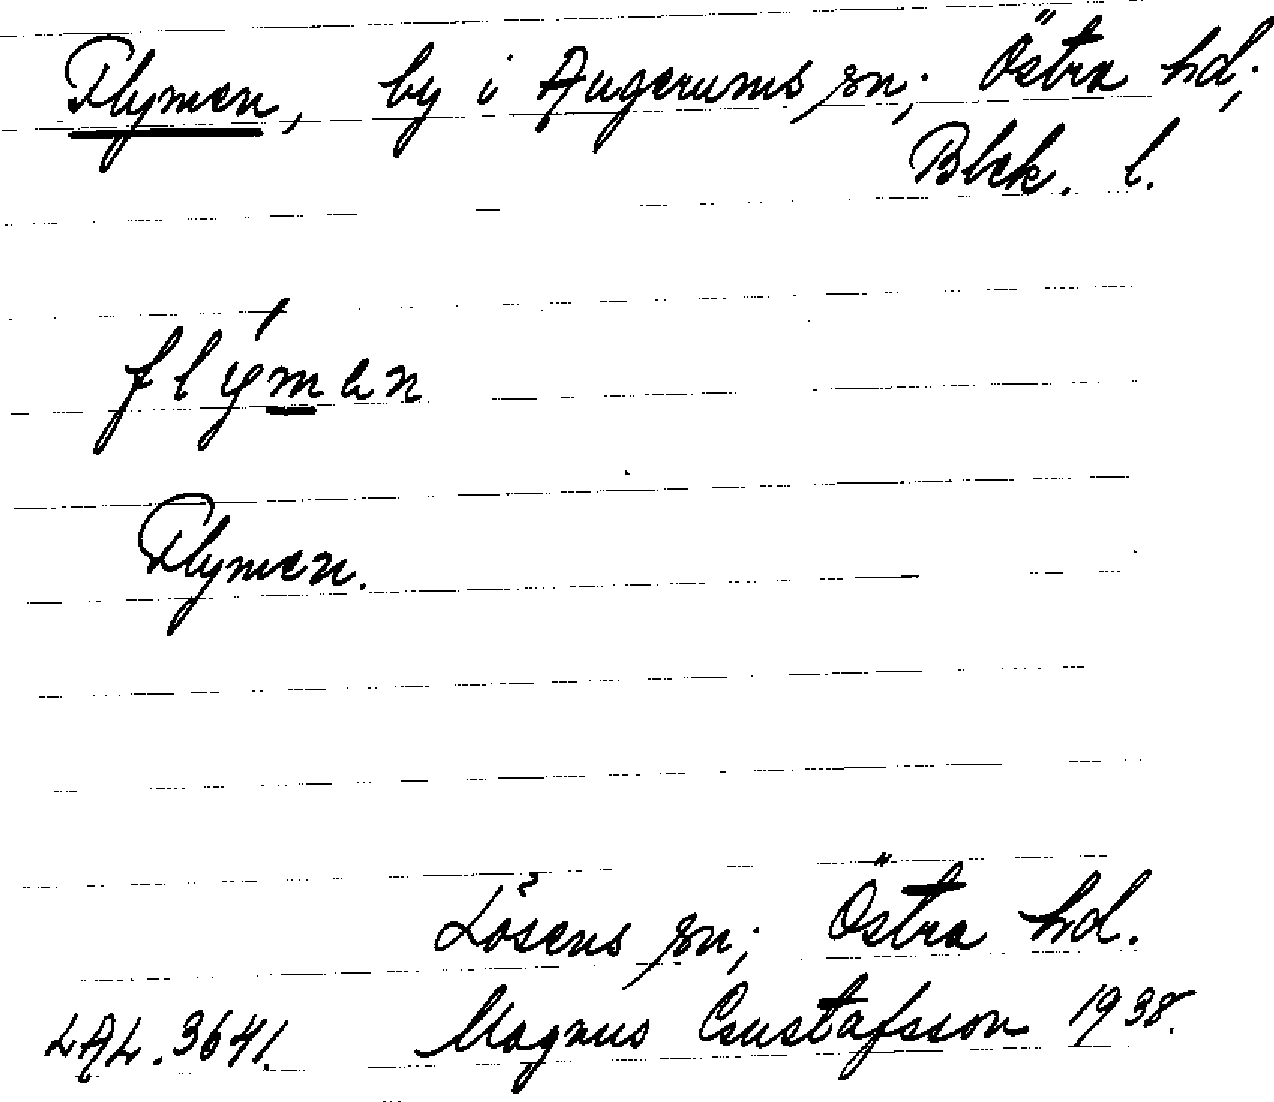 Flymen, by i Augerums sn; Östra hd;
Blek. l.
flýmen
Flymen.
Lösens sn; Östra hd.
LAL. 3641. Magnus Gustafsson 1938.